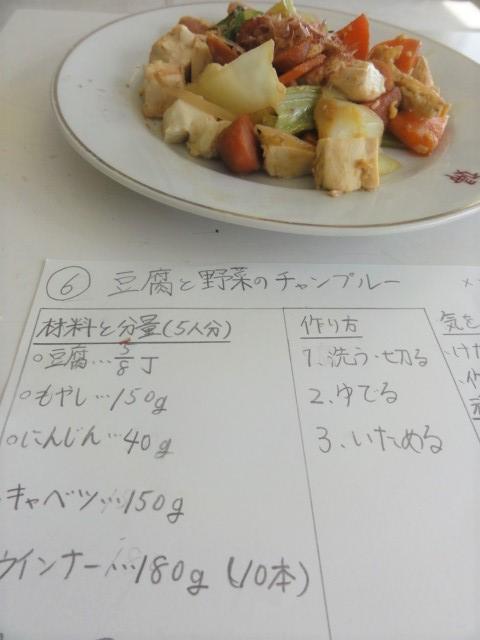 ⑥ 豆腐と野菜のチャンプルー
材料と分量(5人分)
○豆腐…5/8丁
○もやし…150g
○にんじん…40g
キャベツ…150g
ウインナー…180g(10本)
作り方
1.洗う・切る
2.ゆでる
3.いためる
気を